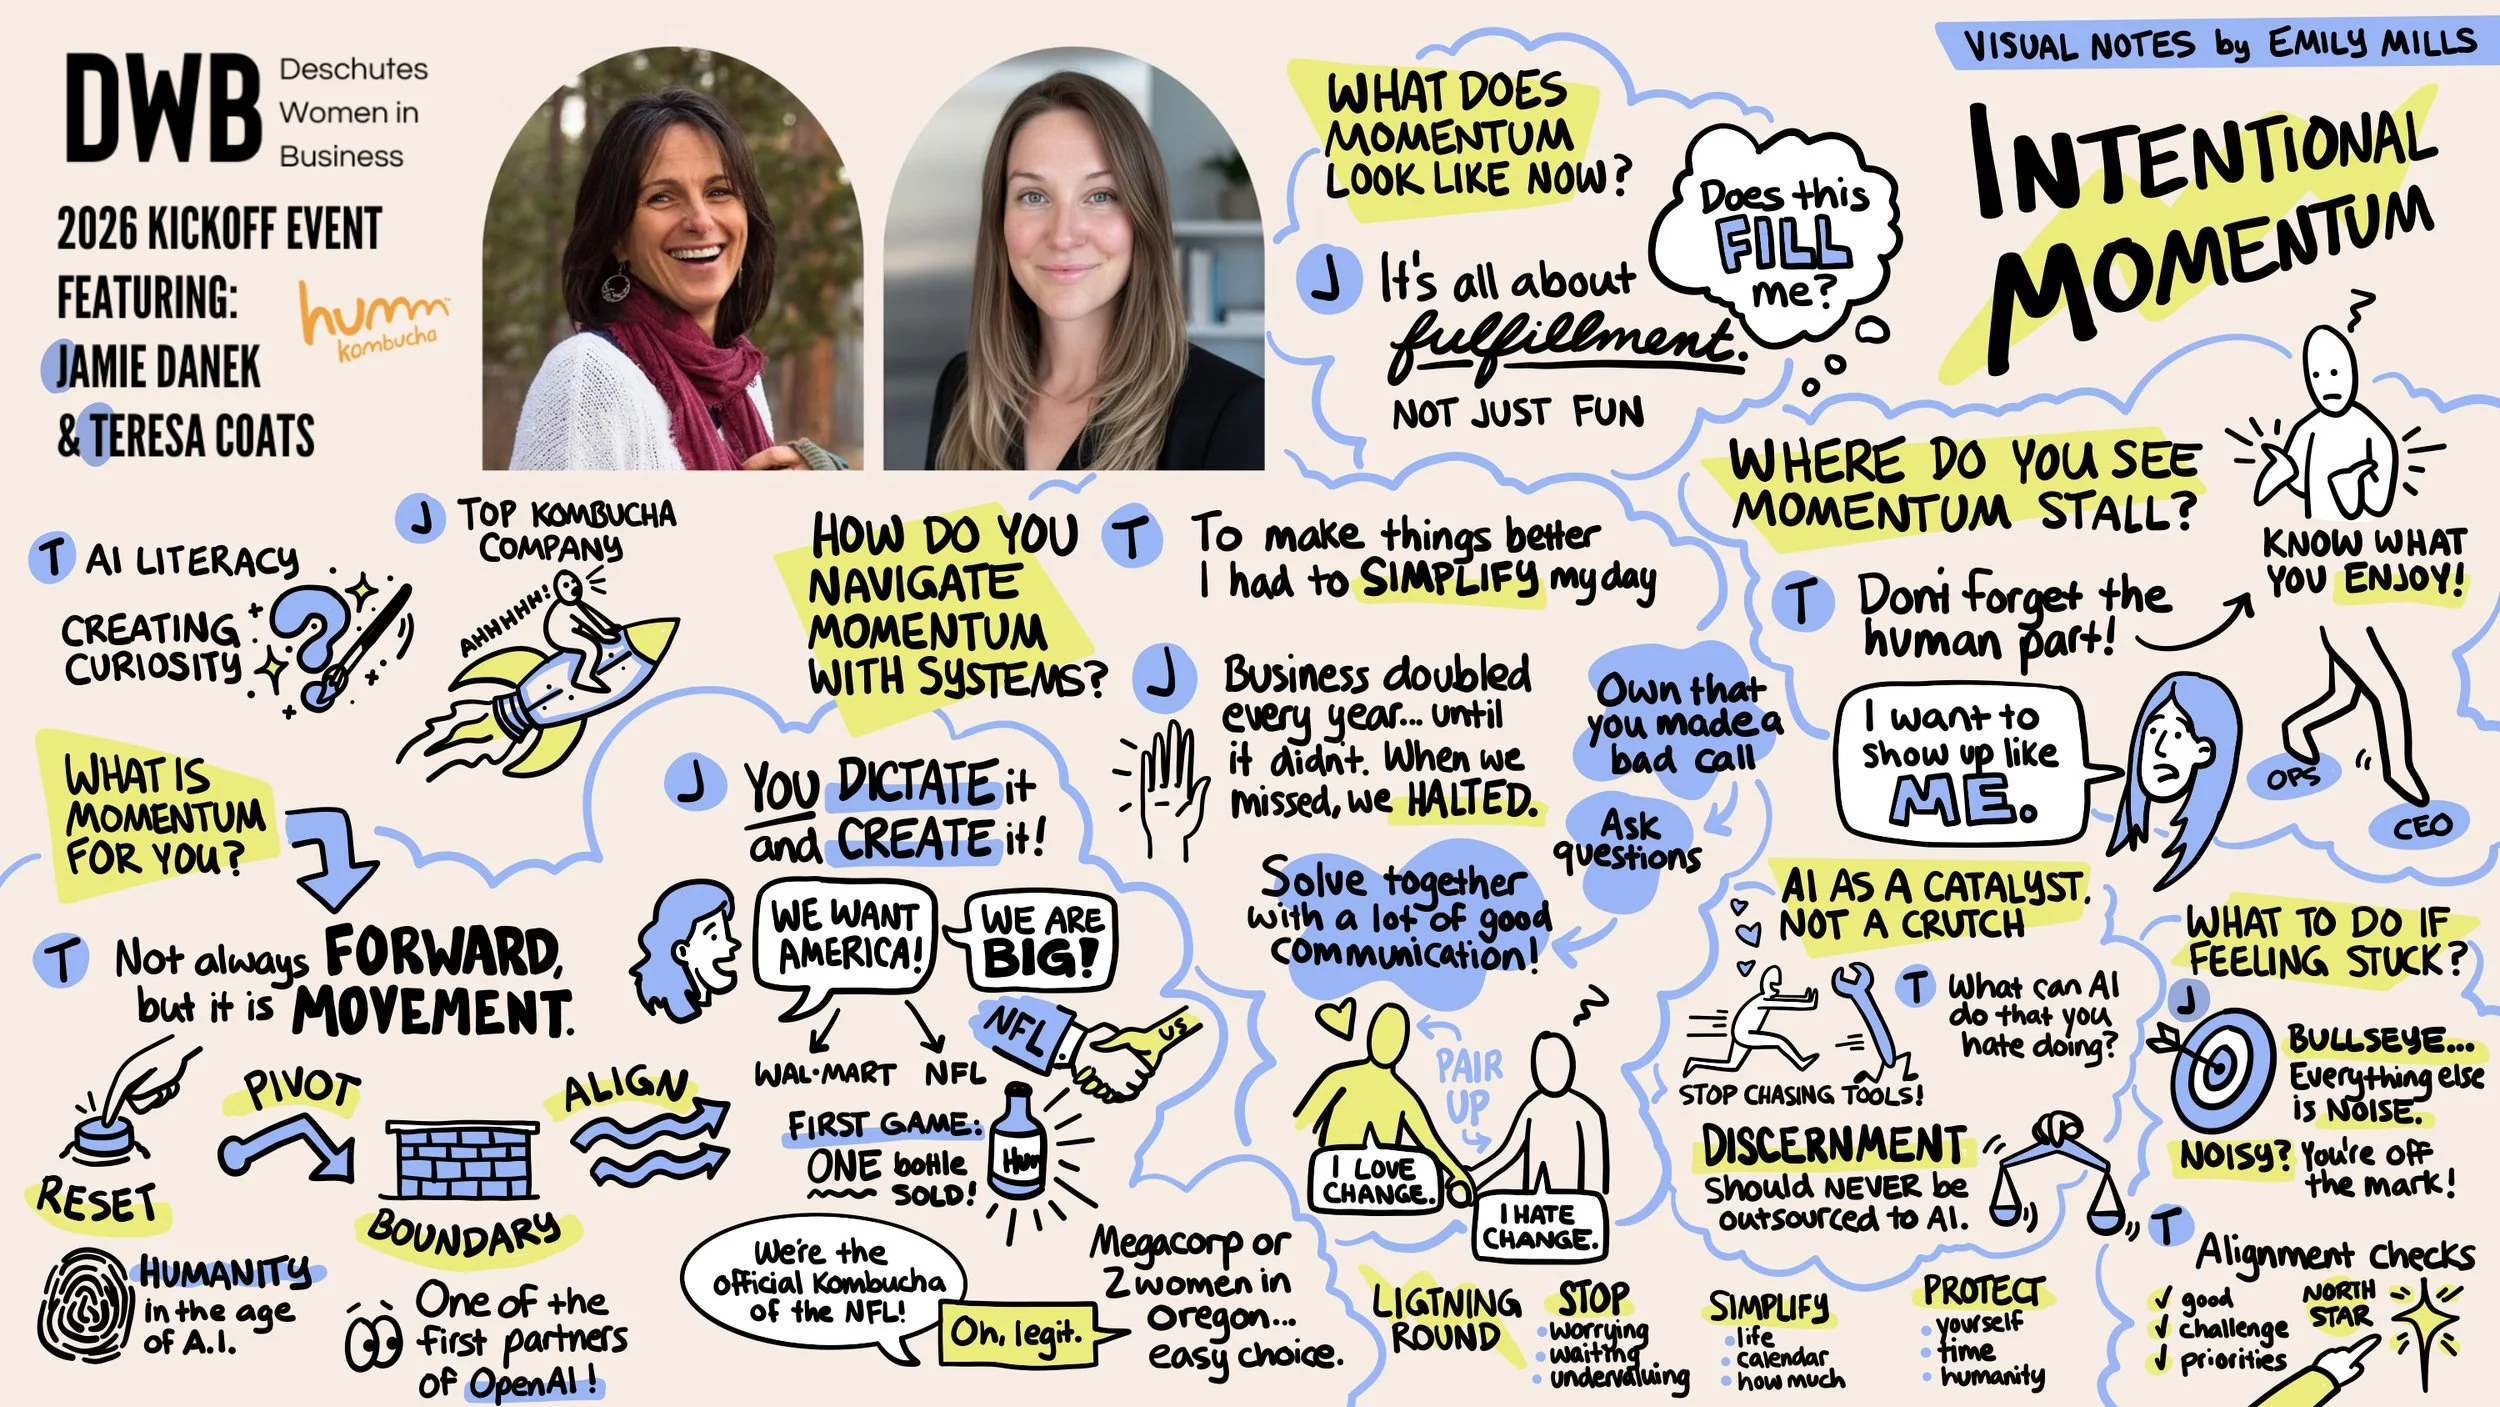 DWB
Deschutes
Women in
Business
2026 KICKOFF EVENT
FEATURING:
JAMIE DANEK
& TERESA COATS
humm™
kombucha
VISUAL NOTES by EMILY MILLS
INTENTIONAL
MOMENTUM
T AI LITERACY
CREATING
CURIOSITY
J TOP KOMBUCHA
COMPANY
AHHHHH!
WHAT IS
MOMENTUM
FOR YOU?
T Not always FORWARD,
but it is MOVEMENT.
RESET
PIVOT
BOUNDARY
ALIGN
HUMANITY
in the age
of A.I.
One of the
first partners
of OpenAI!
HOW DO YOU
NAVIGATE
MOMENTUM
WITH SYSTEMS?
J YOU DICTATE it
and CREATE it!
WE WANT
AMERICA!
WE ARE
BIG!
WAL-MART NFL
NFL
US
FIRST GAME:
ONE bottle
SOLD!
Hum
We're the
official Kombucha
of the NFL!
Oh, legit.
Megacorp or
2 women in
Oregon...
easy choice.
T To make things better
I had to SIMPLIFY my day
J Business doubled
every year... until
it didn't. When we
missed, we HALTED.
Own that
you made a
bad call
Ask
questions
Solve together
with a lot of good
communication!
PAIR
UP
I LOVE
CHANGE.
I HATE
CHANGE.
WHAT DOES
MOMENTUM
LOOK LIKE NOW?
J It's all about
fulfillment.
NOT JUST FUN
Does this
FILL
me?
WHERE DO YOU SEE
MOMENTUM STALL?
T Don't forget the
human part!
KNOW WHAT
YOU ENJOY!
I want to
show up like
ME.
OPS
CEO
AI AS A CATALYST,
NOT A CRUTCH
T What can AI
do that you
hate doing?
STOP CHASING TOOLS!
DISCERNMENT
should NEVER be
outsourced to AI.
WHAT TO DO IF
FEELING STUCK?
J
BULLSEYE...
Everything else
is NOISE.
NOISY? You're off
the mark!
T Alignment checks
good
challenge
priorities
NORTH
STAR
LIGTNING
ROUND
STOP
worrying
waiting
undervaluing
SIMPLIFY
life
calendar
how much
PROTECT
yourself
time
humanity